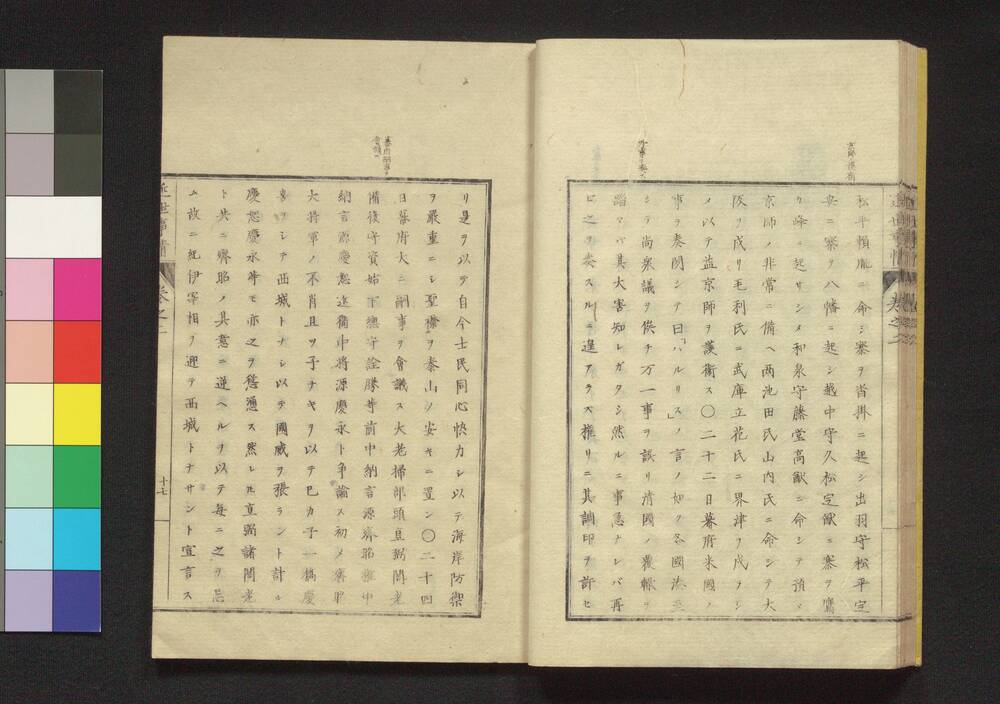 松平頼胤ニ命シ寨ヲ沓掛ニ起シ出羽守松平定
安ニ寨ヲ八幡ニ起シ越中守久松定猷ニ寨ヲ鷹
ヶ峰ニ起サシメ和泉守藤堂高猷ニ命シテ預メ
京師ノ非常ニ備ヘ両池田氏山内氏ニ命シテ大
阪ヲ戍リ毛利氏ニ武庫立花氏ニ界津ヲ戍ラシ
メ以テ益京師ヲ護衛ス〇二十二日幕府米國ノ
事ヲ奏聞シテ曰「ハルリス」ノ言ノ如ク各國渋至
シテ尚衆議ヲ俟チ万一事ヲ誤リ清國ノ覆轍ヲ
蹈マバ其大害知レガタシ然ルニ事急ナレバ再
ヒ之ヲ奏スルニ遑アラス権リニ其調印ヲ許セ
近世事情
巻之二
リ是ヲ以テ自今士民同心恊力シ以テ海岸防禦
ヲ嚴重ニシ聖慮ヲ泰山ノ安キニ置ン〇二十四
日幕府大ニ嗣事ヲ會議ス大老掃部頭直弼閣老
備後守資始下總守詮勝等前中納言源齊昭権中
納言源慶恕近衛中将源慶永ト争論ス初メ齊昭
大将軍ノ不肖且ツ子ナキヲ以テ己カ子一橋慶
喜ヲシテ西城トナシ以テ國威ヲ張ラント計ル
慶恕慶永等モ亦之ヲ慫慂ス然レ𪜈直弼諸閣老
ト共ニ齊昭ノ其意ニ逆ヘルヲ以テ毎ニ之ヲ忌
ム故ニ紀伊宰相ヲ迎テ西城トナサント宣言ス
近世事情
巻之二
十七